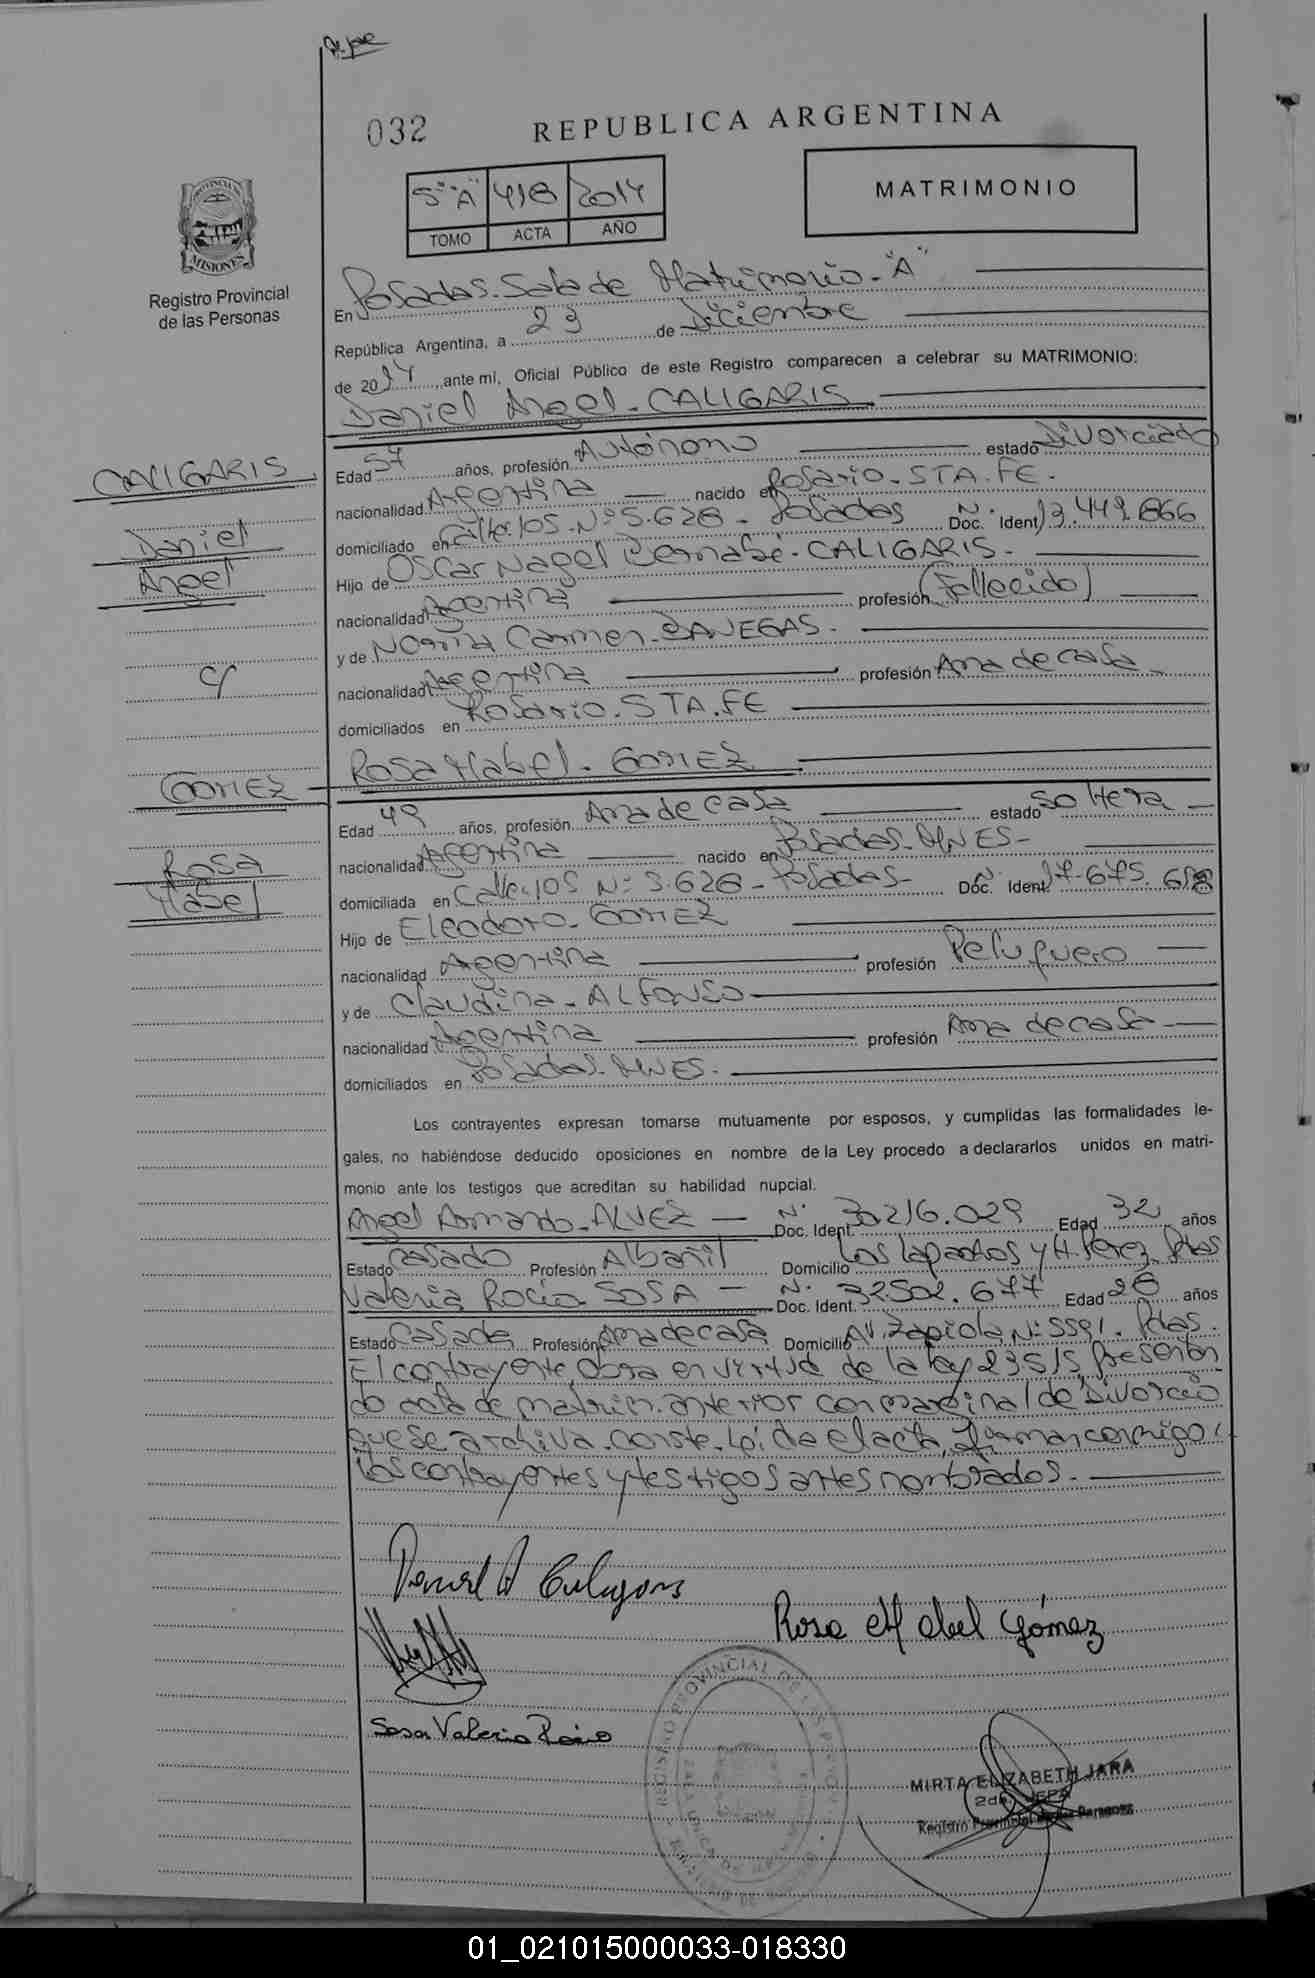 032
REPUBLICA ARGENTINA
5° "A" 418 2014
TOMO ACTA AÑO
MATRIMONIO
MISIONES
Registro Provincial
de las Personas
En Posadas. Sala de Matrimonio - "A"
República Argentina, a 23 de Diciembre
de 2014, ante mí, Oficial Público de este Registro comparecen a celebrar su MATRIMONIO:
Daniel Angel - CALIGARIS
CALIGARIS
Daniel
Angel
c/
GOMEZ
Rosa
Mabel
Edad 57 años, profesión Autónomo estado Divorciado
nacionalidad Argentina nacido en Rosario - STA. FE.
domiciliado en Calle 105 - N° 5.628 - Posadas Doc. Ident. N° 13.449.866
Hijo de Oscar Nagel Bernabé - CALIGARIS.
nacionalidad Argentina profesión (Fallecido)
y de Norma Carmen BANEGAS.
nacionalidad Argentina profesión Ama de casa
domiciliados en Rosario. STA. FE
Rosa Mabel - GOMEZ
Edad 49 años, profesión Ama de casa estado Soltera
nacionalidad Argentina nacido en Posadas - MNES -
domiciliada en Calle 105 N° 5.628 - Posadas - Doc. Ident. N° 17.675.
Hijo de Eleodoro - GOMEZ
nacionalidad Argentina profesión Peluquero
y de Claudina - ALFONSO
nacionalidad Argentina profesión Ama de casa
domiciliados en Posadas - MNES.
Los contrayentes expresan tomarse mutuamente por esposos, y cumplidas las formalidades le-
gales, no habiéndose deducido oposiciones en nombre de la Ley procedo a declararlos unidos en matri-
monio ante los testigos que acreditan su habilidad nupcial.
Angel Armando - ALVEZ - Doc. Ident. N° 30.216.029 Edad 32 años
Estado Casado Profesión Albañil Domicilio Los lapachos y H. Perez Pdas
Valeria Rocio SOSA - Doc. Ident. N° 32.502.677 Edad 28 años
Estado Casada Profesión Ama de casa Domicilio AV. Zapiola N° 5591. Pdas.
El contrayente obra en virtud de la ley 23515, presentan
do acta de matrim. anterior con marginal de Divorcio
que se archiva. conste. Leída el acta, firman conmigo,
los contrayentes y testigos antes nombrados.
Daniel A Caligaris
Rosa Mabel Gómez
Sosa Valeria Rocio
REGISTRO PROVINCIAL DE LAS PERSONAS
MIRTA ELIZABETH JARA
2da. JEFA
Registro Provincial de las Personas
01_021015000033-018330